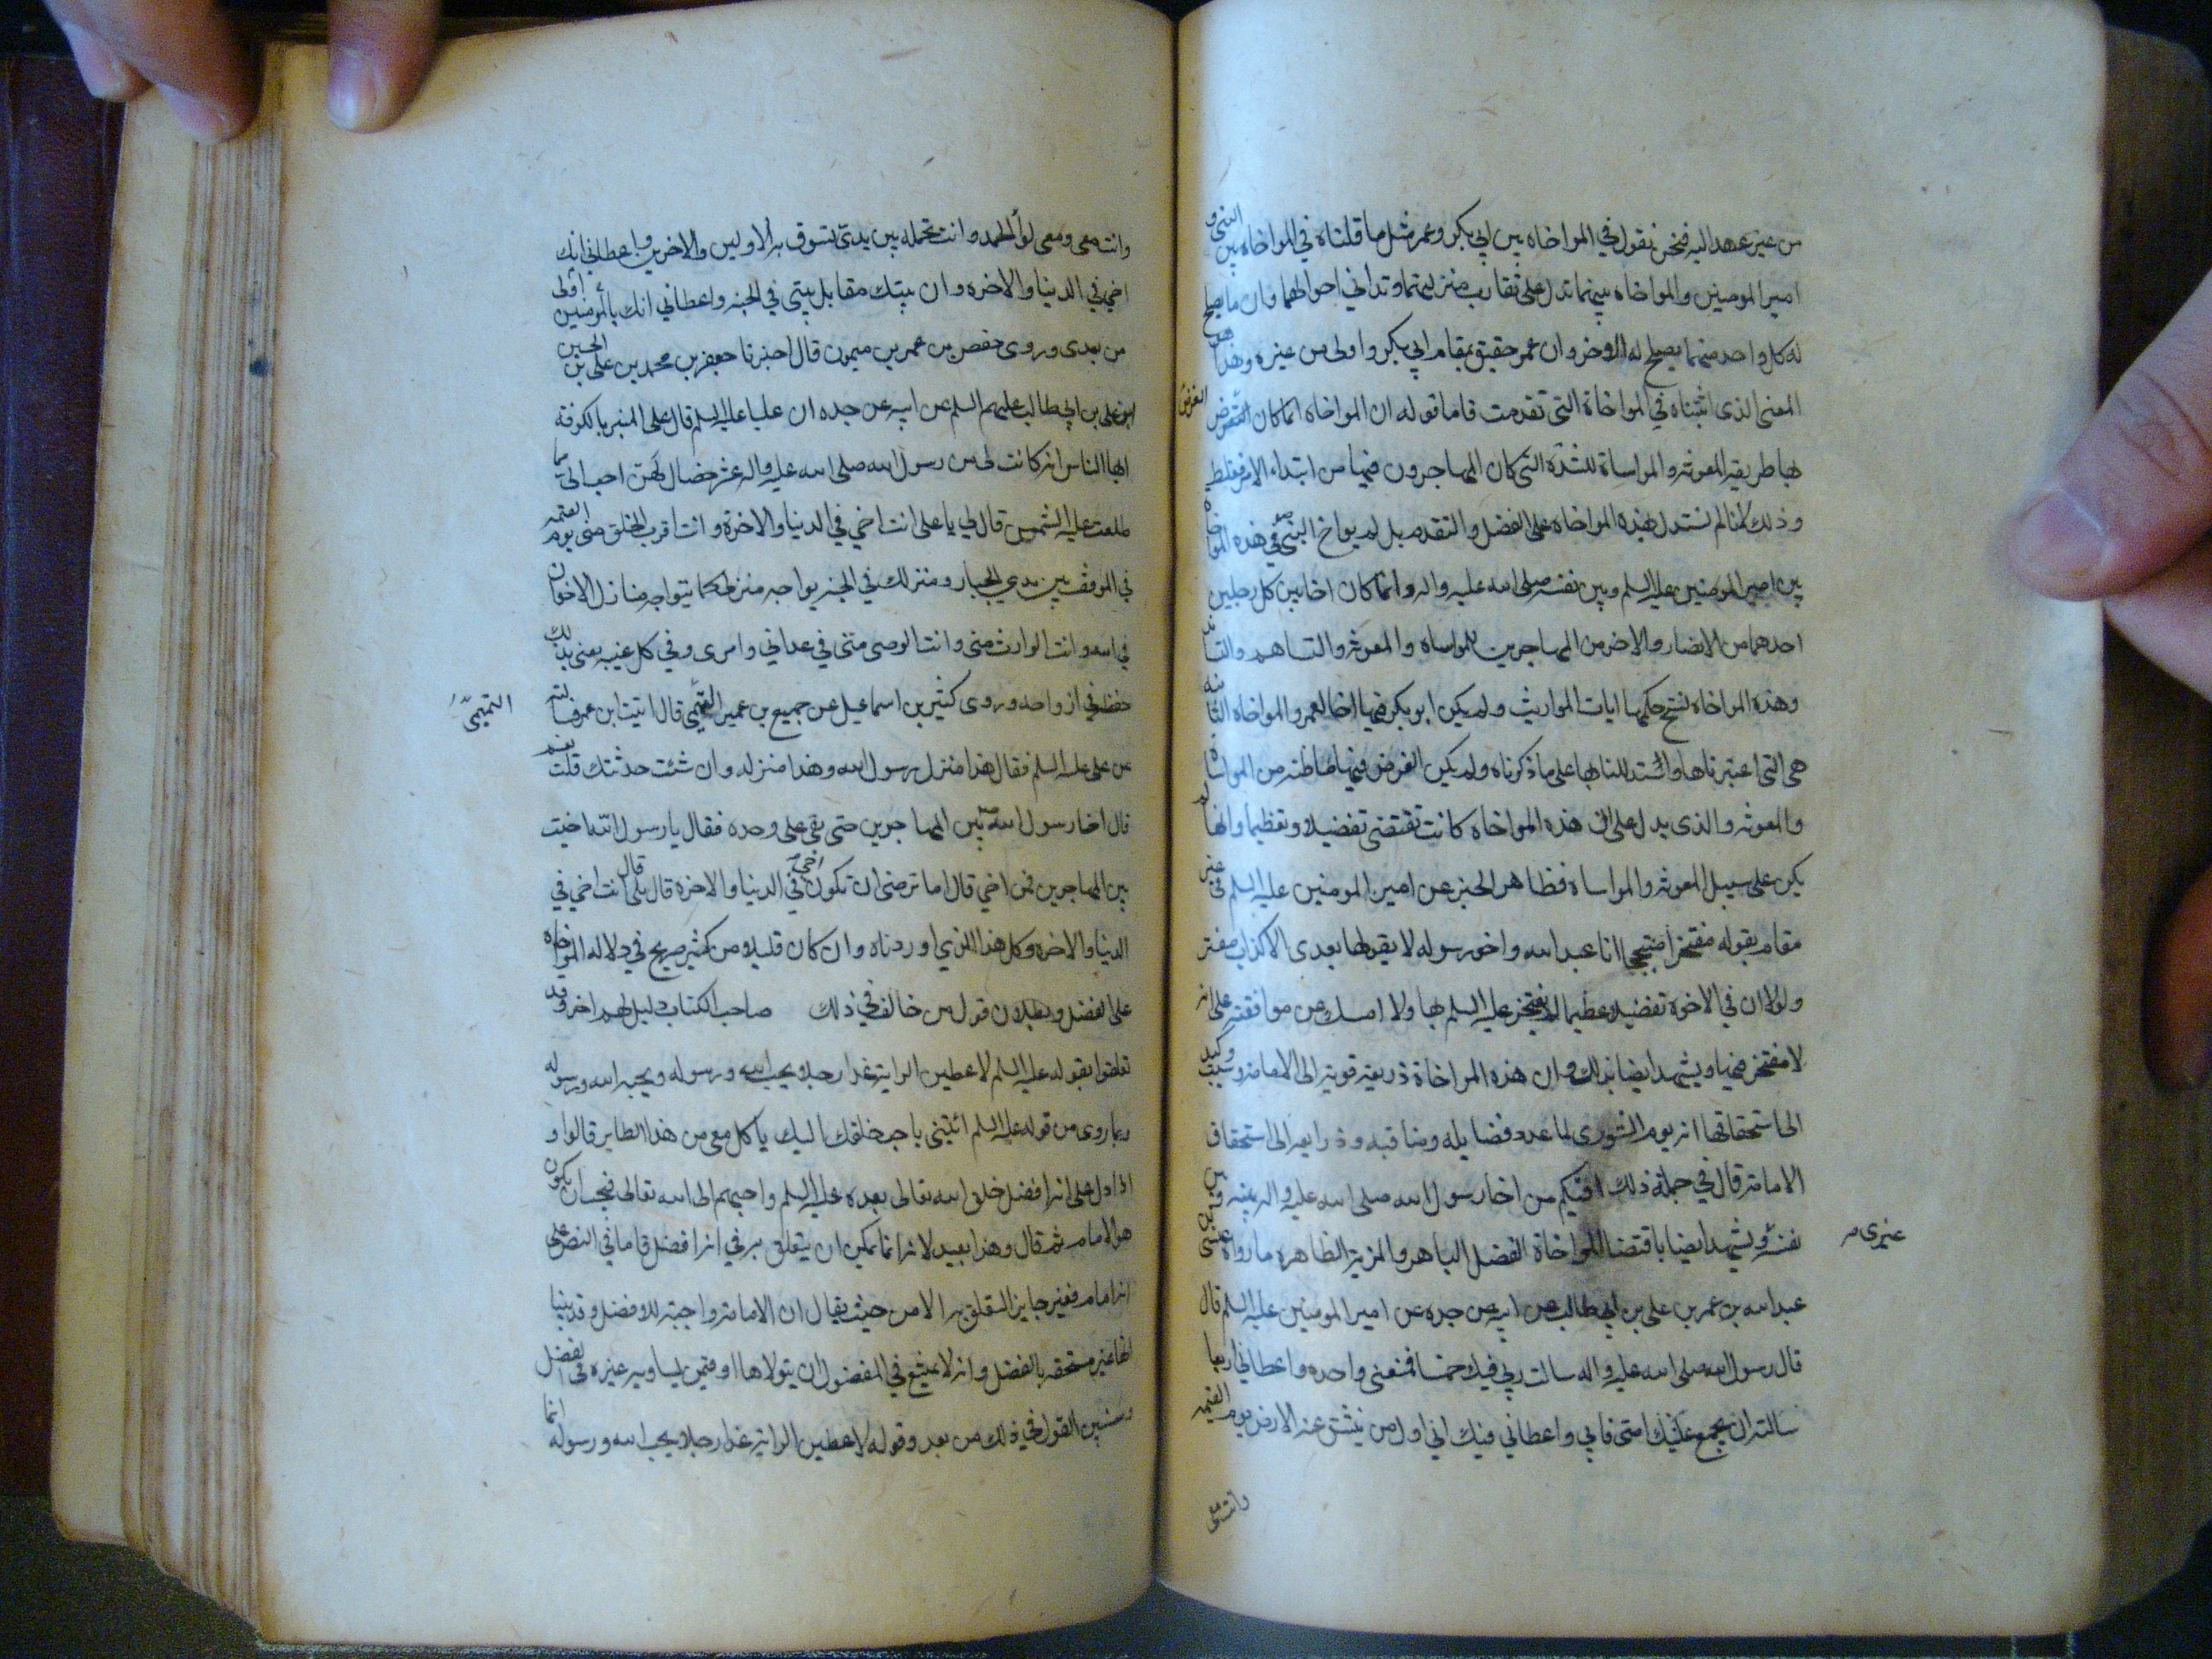 من غير عهد اليه فنحن نقول في المواخاه بين ابي بكر وعمر مثل ما قلناه في المواخاه بين النبي و
امير المومنين والمواخاه بينهما تدل على تقارب منزلتهما وتداني احوالهما وان ما يصلح
له كل واحد منهما يصلح له الاخر وان عمر حقيق بمقام ابي بكر واولى من غيره وهذا هو
المعنى الذي اثبتناه في المواخاة التي تقدمت فاما قوله ان المواخاه انما كان الغرض
بها طريقه المعونه والمواساة للشدة التي كان المهاجرون فيها من ابتداء الامر فغلط
وذلك لاننا لم نستدل بهذه المواخاه على الفضل والتقدم بل لم يواخ النبي في هذه المواخاه
بين امير المومنين عليه السلم وبين نفسه صلى الله عليه واله وانما كان اخا بين كل رجلين
احدهما من الانصار والاخر من المهاجرين للمواساه والمعونه والتساهم والتساند
وهذه المواخاه نسخ حكمها ايات المواريث ولم يكن ابو بكر فيها اخا لعمر والمواخاه الثانيه
هي التي اعتبرناها واستدللنا بها على ما ذكرناه ولم يكن الغرض فيها ما ظنه من المواساه
والمعونه والذي يدل على ان هذه المواخاه كانت تقتضي تفضيلا وتعظيما وانها لم
يكن على سبيل المعونه والمواساه فظاهر الخبر عن امير المومنين عليه السلم في غير
مقام بقوله مفتخرا متبجحا انا عبد الله واخو رسوله لا يقولها بعدي الا كذاب مفتر
ولولا ان في الاخوه تفضيلا عظيما لم يفتخر عليه السلم بها ولا امسك عن موافقته على انه
لا مفتخر فيها ويشهد ايضا بذلك وان هذه المواخاة ذريعه قويه الى الامامه وسبب وكيد
الى استحقاقها انه يوم الشورى لما عدد فضايله ومناقبه وذرايعه الى استحقاق
الامامه قال في جملة ذلك افيكم من اخا رسول الله صلى الله عليه واله بينه وبين
نفسه ويشهد ايضا باقتضا المواخاة الفضل الباهر والمزية الظاهره ما رواه عيسى بن
غيري
عبد الله بن عمر بن علي بن ابي طالب عن ابيه عن جده عن امير المومنين عليه السلم قال
قال رسول الله صلى الله عليه واله سالت ربي فيك خمسا فمنعني واحده واعطاني اربعا
سالته ان يجمع عليك امتي فابى واعطاني فيك اني اول من ينشق عنه الارض يوم القيمه
وانت معي
وانت معي ومعي لوأ الحمد وانت تحمله بين يدي تسوق به الاولين والاخرين واعطاني انك
اخي في الدنيا والاخره وان بيتك مقابل بيتي في الجنه واعطاني انك اولى بالمومنين
من بعدي وروى حفص بن عمر بن ميمون قال اخبرنا جعفر بن محمد بن علي بن الحسين
بن علي بن ابي طالب عليهم السلم عن ابيه عن جده ان عليا عليه السلم قال على المنبر بالكوفه
ايها الناس انه كانت لي من رسول الله صلى الله عليه واله عشر خصال لهن احب الى مما
طلعت عليه الشمس قال لي يا علي انت اخي في الدنيا والاخرة وانت اقرب الخلق مني يوم القيمه
في الموقف بين يدي الجبار ومنزلك في الجنه يواجه منزلي كما يتواجه منازل الاخوان
في الله وانت الوارث مني وانت الوصي مني في عداتي وامري وفي كل غيبه يعني بذلك
حفظي في ازواجه وروى كثير بن اسماعيل عن جميع بن عمير التيمي قال اتيت ابن عمر فسالته
التميمي
عن علي عليه السلم فقال هذا منزل رسول الله وهذا منزله وان شئت حدثتك قلت نعم
قال اخا رسول الله بين المهاجرين حتى بقي علي وحده فقال يا رسول الله اخيت
بين المهاجرين فمن اخي قال اما ترضى ان تكون اخي في الدنيا والاخرة قال بلى قال انت اخي في
الدنيا والاخره وكل هذا الذي اوردناه وان كان قليلا من كثير صريح في دلاله المواخاه
على الفضل وبطلان قول من خالف في ذلك صاحب الكتاب دليل لهم اخر وقد
تعلقوا بقوله عليه السلم لاعطين الرايه غدا رجلا يحب الله ورسوله ويحبه الله ورسوله
وبما روى من قوله عليه السلم ائتيني باحب خلقك اليك ياكل معي من هذا الطاير قالوا و
اذا دل على انه افضل خلق الله تعالى بعده عليه السلم واحبهم الى الله تعالى فيجب ان يكون
هو الامام ثم قال وهذا بعيد لانه انما يمكن ان يتعلق به في انه افضل فاما في النص على
انه امام فغير جايز التعلق به الا من حيث يقال ان الامامه واجبة للافضل وقد بينا
انها غير مستحقه بالفضل وانه لا يمتنع في المفضول ان يتولاها او فيمن يساويه غيره في الفضل
وسنبين القول في ذلك من بعد وقوله لاعطين الرايه غدا رجلا يحب الله ورسوله انما